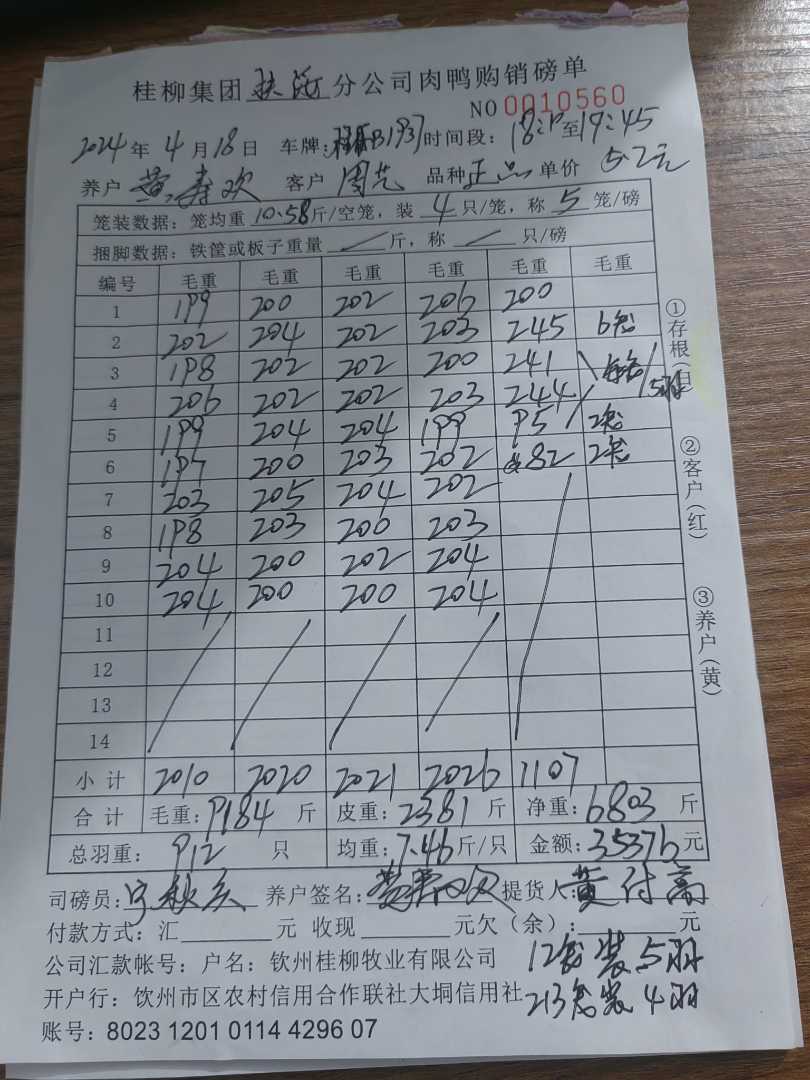 桂柳集团扶绥分公司肉鸭购销磅单
NO 0010560
2024年4月18日 车牌: B1937 时间段: 至19:45
养户 黄寿欢 客户 周艺 品种 正品 单价 5.2元
笼装数据：笼均重10.58斤/空笼，装4只/笼，称5笼/磅
捆脚数据：铁筐或板子重量 斤，称 只/磅
编号 毛重 毛重 毛重 毛重 毛重 毛重
1 199 200 202 206 200
2 202 204 202 203 245 6笼
3 198 202 202 200 241
4 206 202 202 203 244 5羽
5 199 204 204 199 95 2笼
6 197 200 203 202 82 2笼
7 203 205 204 202
8 198 203 200 203
9 204 200 202 204
10 204 200 200 204
11
12
13
14
小计 2010 2020 2021 2026 1107
合计 毛重: 9184 斤 皮重: 2381 斤 净重: 6803 斤
总羽重: 912 只 均重: 7.46 斤/只 金额: 35376 元
司磅员: 养户签名: 提货人: 黄付高
付款方式: 汇 元 收现 元欠（余）: 元
公司汇款帐号: 户名: 钦州桂柳牧业有限公司 12笼装5羽
开户行: 钦州市区农村信用合作联社大垌信用社 213笼装4羽
账号: 8023 1201 0114 4296 07
①存根（白）
②客户（红）
③养户（黄）